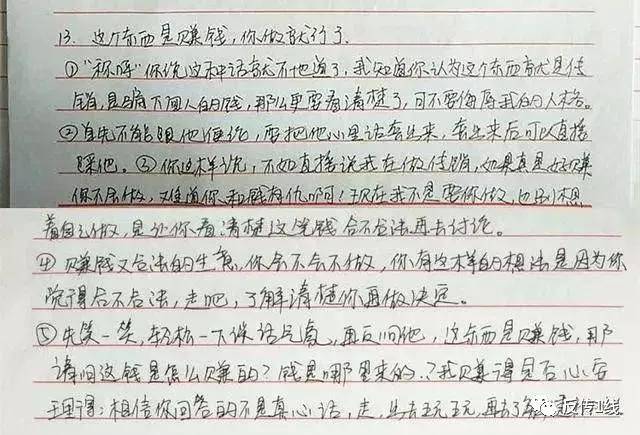 13. 这个东西是赚钱,你做就行了.
①“称呼”你说这种话就不地道了,我知道你认为这个东西就是传
销,是骗下面人的钱,那么更要看清楚了,可不要侮辱我的人格。
②首先不能跟他便论,要把他心里话套出来,套出来后可以直接
踩他。③你这样说,不如直接说我在做传销,如果真是好赚
你不会做,难道你和钱有仇啊!现在我不是要你做,也别想
着自己做,是让你看清楚这笔钱合不合法再去讨论。
④赚钱又合法的生意,你会不会不做,你有这样的想法是因为你
觉得合不合法,走吧,了解清楚你再做决定。
⑤先笑一笑,轻松一下谈话气氛,再反问他,这东西是赚钱,那
请问这钱是怎么赚的?钱是哪里来的.?我赚得是否心安
理得;相信你回答的不是真心话,走,出去玩玩,再去了解
反传1线